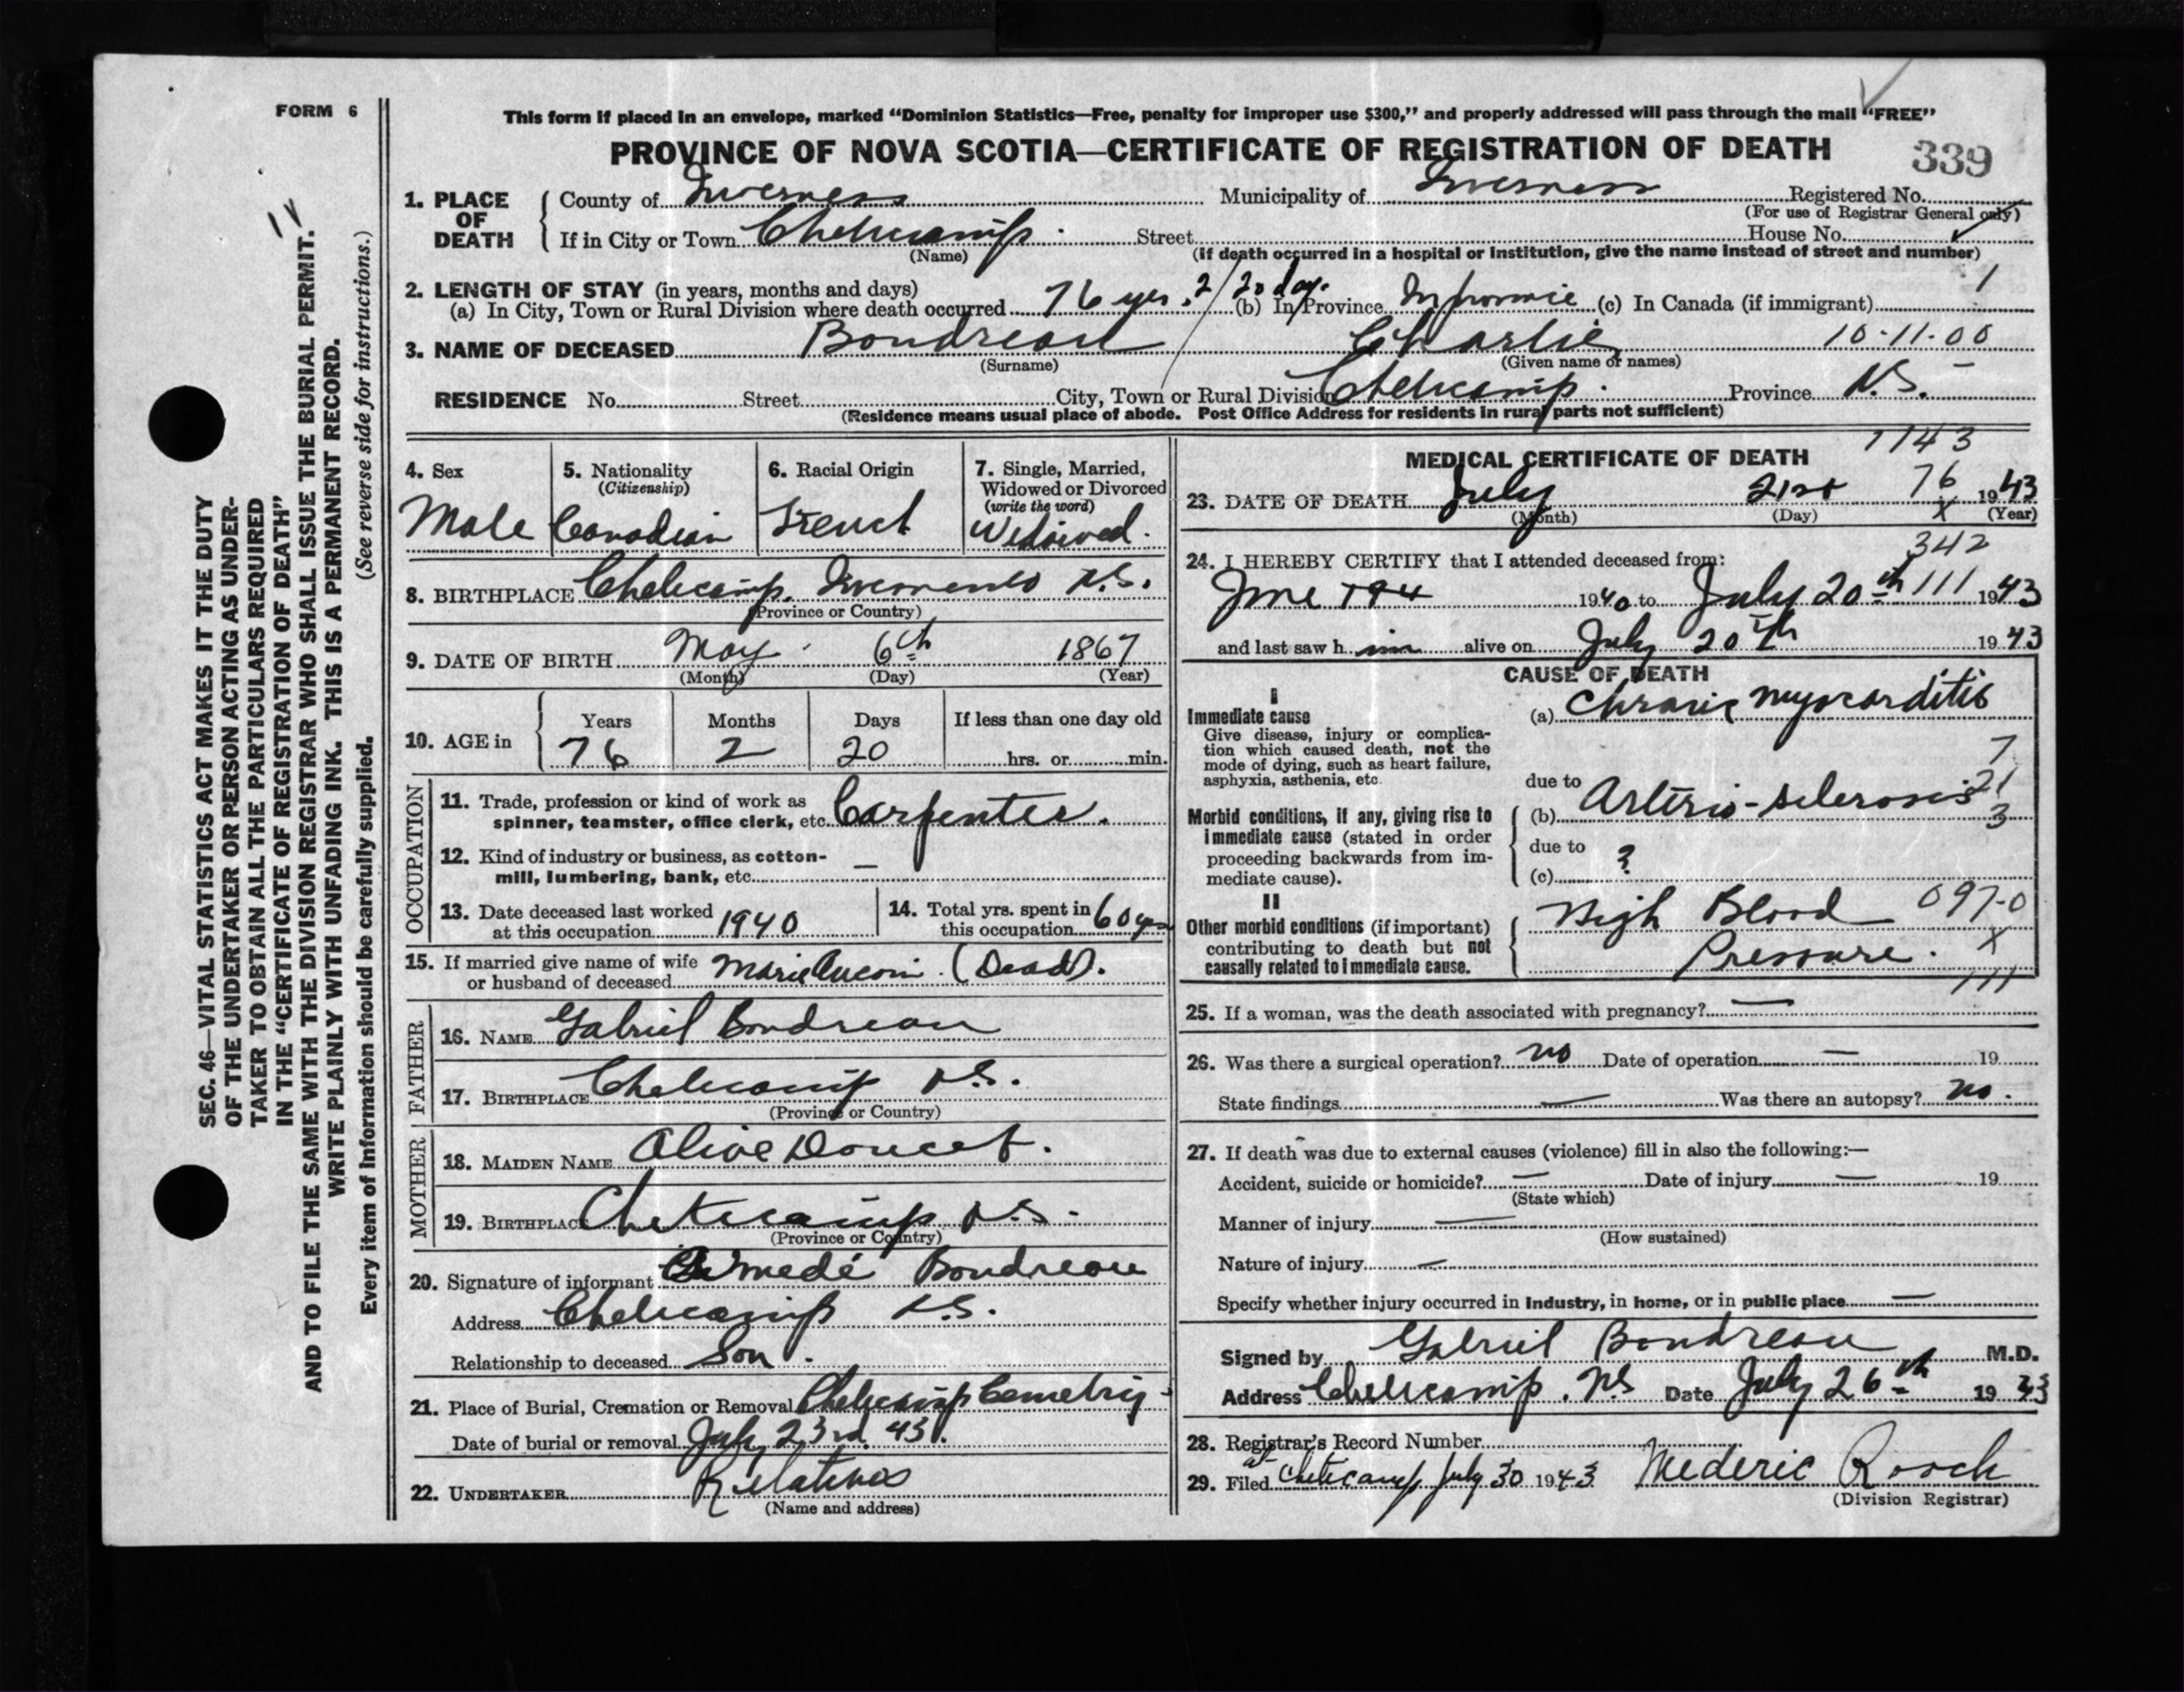 FORM 6
This form if placed in an envelope, marked "Dominion Statistics—Free, penalty for improper use $300," and properly addressed will pass through the mail "FREE"
PROVINCE OF NOVA SCOTIA—CERTIFICATE OF REGISTRATION OF DEATH
339
1. PLACE OF DEATH
County of Inverness Municipality of Inverness Registered No.
(For use of Registrar General only)
If in City or Town Cheticamp Street House No.
(Name) (If death occurred in a hospital or institution, give the name instead of street and number)
2. LENGTH OF STAY (in years, months and days)
(a) In City, Town or Rural Division where death occurred 76 yrs. 2/20 day. (b) In Province (c) In Canada (if immigrant) 1
3. NAME OF DECEASED Boudreau Charlie 10-11-00
(Surname) (Given name or names)
RESIDENCE No. Street City, Town or Rural Division Cheticamp. Province N.S.
(Residence means usual place of abode. Post Office Address for residents in rural parts not sufficient)
4. Sex
Male
5. Nationality
(Citizenship)
Canadian
6. Racial Origin
French
7. Single, Married,
Widowed or Divorced
(write the word)
Widowed.
8. BIRTHPLACE Cheticamp. Inverness N.S.
(Province or Country)
9. DATE OF BIRTH May 6th 1867
(Month) (Day) (Year)
10. AGE in Years Months Days If less than one day old
76 2 20 hrs. or min.
OCCUPATION
11. Trade, profession or kind of work as
spinner, teamster, office clerk, etc. Carpenter.
12. Kind of industry or business, as cotton-
mill, lumbering, bank, etc. —
13. Date deceased last worked
at this occupation 1940
14. Total yrs. spent in
this occupation 60 yrs
15. If married give name of wife
or husband of deceased Marie Aucoin. (Dead).
FATHER
16. NAME Gabriel Boudreau
17. BIRTHPLACE Cheticamp N.S.
(Province or Country)
MOTHER
18. MAIDEN NAME Olive Doucet.
19. BIRTHPLACE Cheticamp N.S.
(Province or Country)
20. Signature of informant Boudreau
Address Cheticamp N.S.
Relationship to deceased Son.
21. Place of Burial, Cremation or Removal Cheticamp Cemetry
Date of burial or removal July 23rd. 43.
22. UNDERTAKER Relatives
(Name and address)
MEDICAL CERTIFICATE OF DEATH
7143
23. DATE OF DEATH July 21st 76 1943
(Month) (Day) X (Year)
342
24. I HEREBY CERTIFY that I attended deceased from:
June 194 1940 to July 20th 111 1943
and last saw him alive on July 20th 1943
CAUSE OF DEATH
I
Immediate cause
Give disease, injury or complica-
tion which caused death, not the
mode of dying, such as heart failure,
asphyxia, asthenia, etc.
(a) Chronic myocarditis
7
due to 21
(b) Arterio-sclerosis 3
due to
(c) ?
Morbid conditions, if any, giving rise to
immediate cause (stated in order
proceeding backwards from im-
mediate cause).
II
Other morbid conditions (if important)
contributing to death but not
causally related to immediate cause.
High Blood 097-0
Pressure. X
111
25. If a woman, was the death associated with pregnancy? —
26. Was there a surgical operation? no Date of operation — 19
State findings — Was there an autopsy? no.
27. If death was due to external causes (violence) fill in also the following:—
Accident, suicide or homicide? — Date of injury — 19
(State which)
Manner of injury —
(How sustained)
Nature of injury —
Specify whether injury occurred in industry, in home, or in public place —
Signed by Gabriel Boudreau M.D.
Address Cheticamp. N.S Date July 26th 1943
28. Registrar's Record Number
29. Filed at Cheticamp July 30 1943 Mederic Roach
(Division Registrar)
SEC. 46—VITAL STATISTICS ACT MAKES IT THE DUTY
OF THE UNDERTAKER OR PERSON ACTING AS UNDER-
TAKER TO OBTAIN ALL THE PARTICULARS REQUIRED
IN THE "CERTIFICATE OF REGISTRATION OF DEATH"
AND TO FILE THE SAME WITH THE DIVISION REGISTRAR WHO SHALL ISSUE THE BURIAL PERMIT.
WRITE PLAINLY WITH UNFADING INK. THIS IS A PERMANENT RECORD.
Every item of information should be carefully supplied. (See reverse side for instructions.)